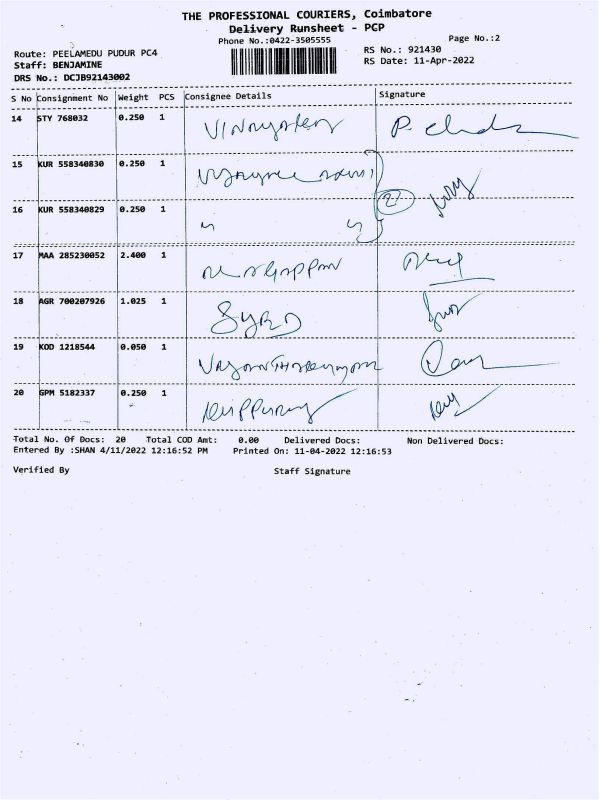 THE PROFESSIONAL COURIERS, Coimbatore
Delivery Runsheet - PCP
Phone No.:0422-3505555
Page No.:2
Route: PEELAMEDU PUDUR PC4
RS No.: 921430
Staff: BENJAMINE
RS Date: 11-Apr-2022
DRS No.: DCJB92143002
S No Consignment No Weight PCS Consignee Details Signature
14 STY 768032 0.250 1
15 KUR 558340830 0.250 1
16 KUR 558340829 0.250 1
17 MAA 285230052 2.400 1
18 AGR 700207926 1.025 1
19 KOD 1218544 0.050 1
20 GPM 5182337 0.250 1
Total No. Of Docs: 20 Total COD Amt: 0.00 Delivered Docs: Non Delivered Docs:
Entered By :SHAN 4/11/2022 12:16:52 PM Printed On: 11-04-2022 12:16:53
Verified By Staff Signature